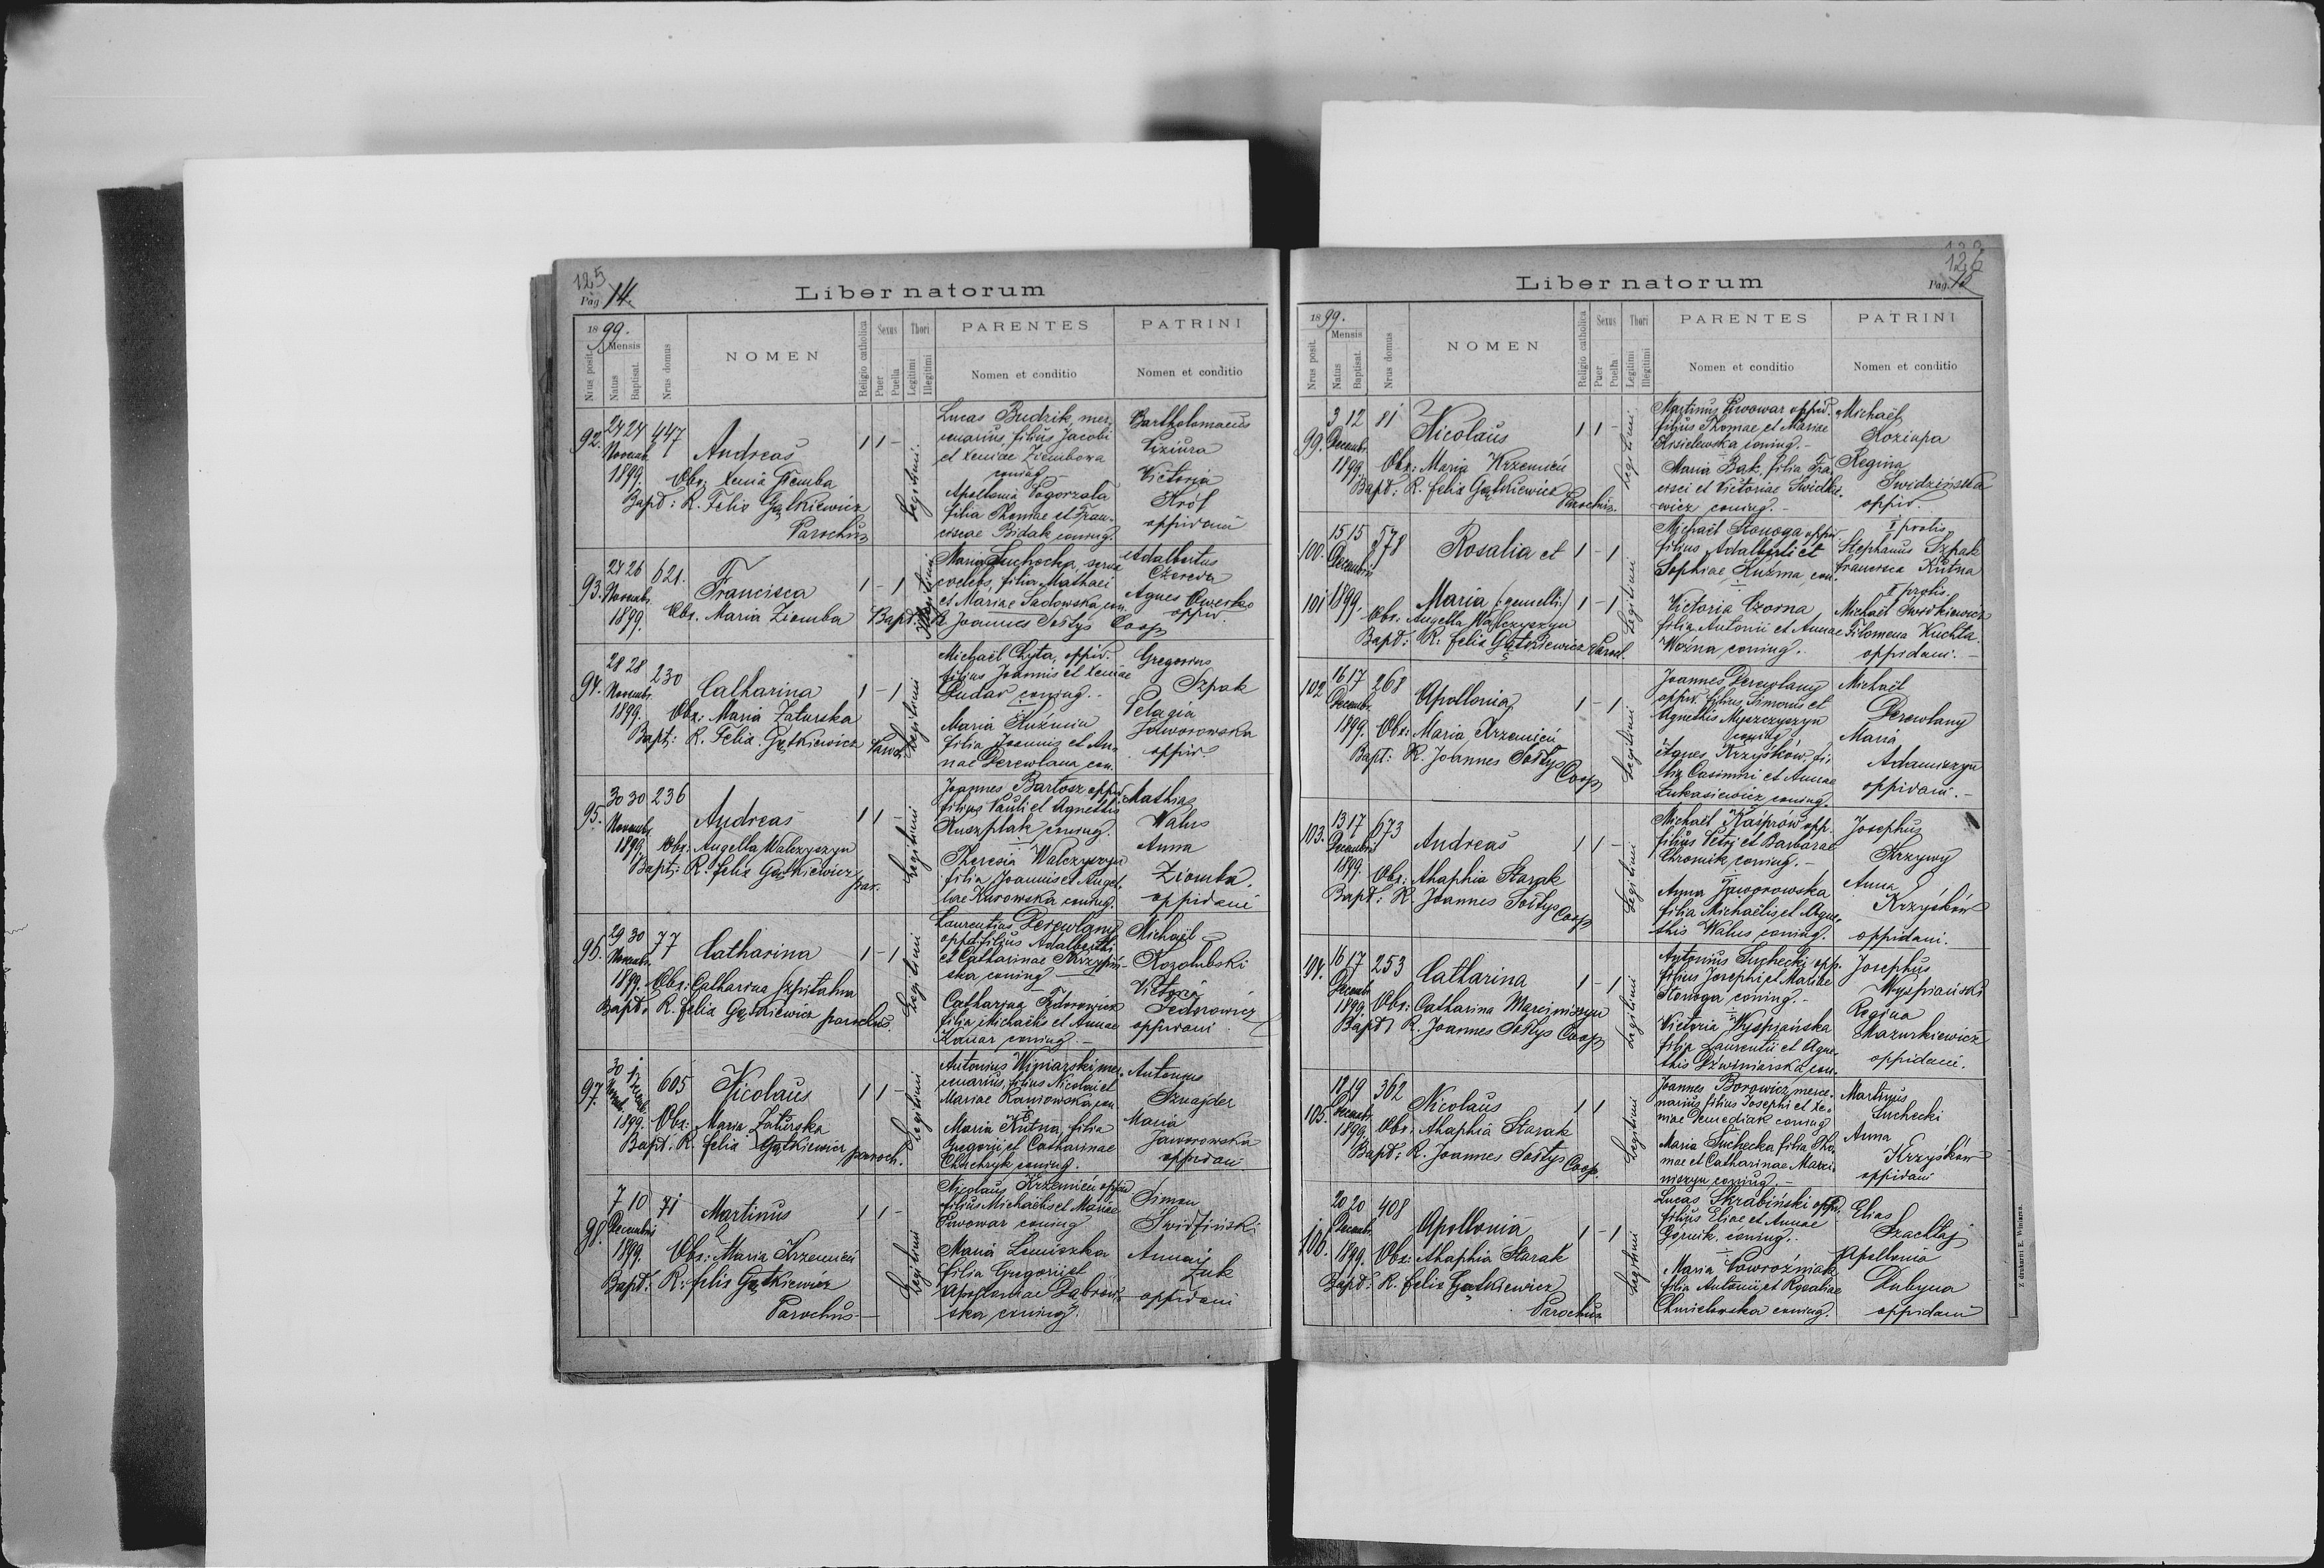 125
Pag. 14.
Liber natorum
1899.
Nrus posit.
Mensis
Natus
Baptisat.
Nrus domus
NOMEN
Religio catholica
Sexus
Puer
Puella
Thori
Legitimi
Illegitimi
PARENTES
Nomen et conditio
PATRINI
Nomen et conditio
92.
24 24 447
Novemb.
1899.
Andreas
1 1 -
Legitimi
Obs: Xenia Ziemba
Bapt: R. Felix Gątkiewicz
Parochus
Lucas Budzik, mer-
cenarius, filius Jacobi
et Xeniae Ziembowa
coniug.
Apollonia Pogorzała
filia Thomae et Fran-
ciscae Bidak coniug.
Bartholomaeus
Victoria
Król
oppidani
93.
24 26 621.
Novemb.
1899.
Francisca
1 - 1
Illegitimi
Obs. Maria Ziemba
Bapt. R. Joannes Sołtys Coop
Maria Suchocka, serva
coelebs, filia Mathaei
et Mariae Sadowska con.
Adalbertus
Czereda
Agnes
oppid.
94.
28 28 230
Novemb.
1899.
Catharina
1 - 1
Legitimi
Obs: Maria Zaturska
Bapt: R. Felix Gątkiewicz Paroch
Michaël Chyta, oppid.
filius Joannis et Xeniae
Dudar coniug.
Maria Kuźma
filia Joannis et An-
nae Derewlana con.
Gregorius
Szpak
Pelagia
Jaworowska
oppid.
95.
30 30 236
Novemb.
1899.
Andreas
1 1 -
Legitimi
Obs: Angella Walczyszyn
Bapt: R. Felix Gątkiewicz
par.
Joannes Bartosz oppid.
filius Pauli et Agnethis
Kuszplak coniug.
Theresia Walczyszyn
filia Joannis et Angel-
lae Kurowska coniug.
Mathias
Walus
Anna
Ziomba.
oppidani
96.
29 30 77
Novemb.
1899.
Catharina
1 - 1
Legitimi
Obs: Catharina Szpitalna
Bapt. R. Felix Gątkiewicz parochus.
Laurentius Derewlany
oppid. filius Adalberti
et Catharinae Skrzypiń-
ska coniug
Catharina Fedorowicz
filia Michaëlis et Annae
coniug.
Michaël
Kozołubski
Victoria
Fedorowicz
oppidani
97.
30 1
Novemb. Decemb.
605
1899.
Nicolaus
1 1 -
Legitimi
Obs: Maria Zaturska
Bapt. R. Felix Gątkiewicz paroch.
Antonius Winiarski mer-
cenarius, filius Nicolai et
Mariae Raniowska con
Maria Kutna, filia
Gregorii et Catharinae
coniug.
Antonius
Sznajder
Maria
Jaworowska
oppidani
98.
7 10 71
Decembris
1899.
Martinus
1 1 -
Legitimi
Obs: Maria Krzemień
Bapt: R. Felix Gątkiewicz
Parochus
Nicolaus Krzemień oppid
filius Michaëlis et Mariae
Piwowar coniug
Maria Lemiszka
filia Gregorii et
Apolloniae Dąbrow-
ska coniug.
Simon
Swidziński
Anna
Żuk
oppidani
126
Liber natorum
Pag.
1899.
Nrus posit.
Mensis
Natus
Baptisat.
Nrus domus
NOMEN
Religio catholica
Sexus
Puer
Puella
Thori
Legitimi
Illegitimi
PARENTES
Nomen et conditio
PATRINI
Nomen et conditio
99.
3 12 81
Decemb.
1899.
Nicolaus
1 1 -
Legitimi
Obs: Maria Krzemień
Bapt: R. Felix Gątkiewicz
Parochus.
Martinus Piwowar oppid.
filius Thomae et Mariae
Kisielewska coniug.
Maria Bąk, filia Fran-
cisci et Victoriae Swidke-
wicz coniug.
Michaël
Koziupa
Regina
Swidzińska
oppid.
100.
15 15 578
Decembris
Rosalia et
1 - 1
101
1899.
Maria (: gemelli :)
1 - 1
Legitimi
Obs: Angella Walczyszyn
Bapt: R. Felix Gątkiewicz Paroch.
Michaël Stonoga oppid.
filius Adalberti et
Sophiae Kuźma, con.
Victoria Czorna
filia Antonii et Annae
Woźna coniug.
I prolis
Stephanus Szpak
Francisca Kutna
II prolis
Michaël Swidkiewicz
Filomena Kuchta.
oppidani.
102
16 17 268
Decemb.
1899.
Apollonia
1 - 1
Legitimi
Obs: Maria Krzemień
Bapt: R. Joannes Sołtys
Coop
Joannes Derewlany
oppid. filius Simonis et
Agnethis Myszczyszyn
coniug
Agnes Krzyśków, fi-
lia Casimiri et Annae
Łukasiewicz coniug.
Michaël
Derewlany
Maria
Adamiszyn
oppidani.
103.
13 17 673
Decembris
1899.
Andreas
1 1 -
Legitimi
Obs: Ahaphia Starak
Bapt: R. Joannes Sołtys
Coop
Michaël Kasprów opp.
filius Petri et Barbarae
Chromik, coniug.
Anna Jaworowska
filia Michaëlis et Agne-
this Walus coniug.
Josephus
Krzywy
Anna
Krzyśków
oppidani.
104.
16 17 253
Decemb.
1899.
Catharina
1 - 1
Legitimi
Obs: Catharina Marciniszyn
Bapt: R. Joannes Sołtys Coop
Antonius Suchecki opp.
filius Josephi et Mariae
Stonoga coniug.
Victoria Wyspiańska
filia Laurentii et Agne-
this Dźwiniarska con.
Josephus
Wyspiański
Regina
Mazurkiewicz
oppidani.
105.
18 19 362
Decemb.
1899.
Nicolaus
1 1
Legitimi
Obs: Ahaphia Starak
Bapt: R. Joannes Sołtys
Coop.
Joannes Borowicz, merce-
narius, filius Josephi et Xe-
niae coniug
Maria Suchecka filia Tho-
mae et Catharinae Marci-
niszyn coniug.
Martinus
Suchecki
Anna
Krzyśków
oppidani
106.
20 20 408
Decemb.
1899.
Apollonia
1 - 1
Legitimi
Obs: Ahaphia Starak
Bapt: R. Felix Gątkiewicz
Parochus
Lucas Skrabiński oppid.
filius Eliae et Annae
Górnik, coniug.
Maria Pawroźniak
filia Antonii et Rosaliae
Chmielowska coniug.
Elias
Szachtaj
Apollonia
Dubyna
oppidani
Z drukarni E. Winiarza.